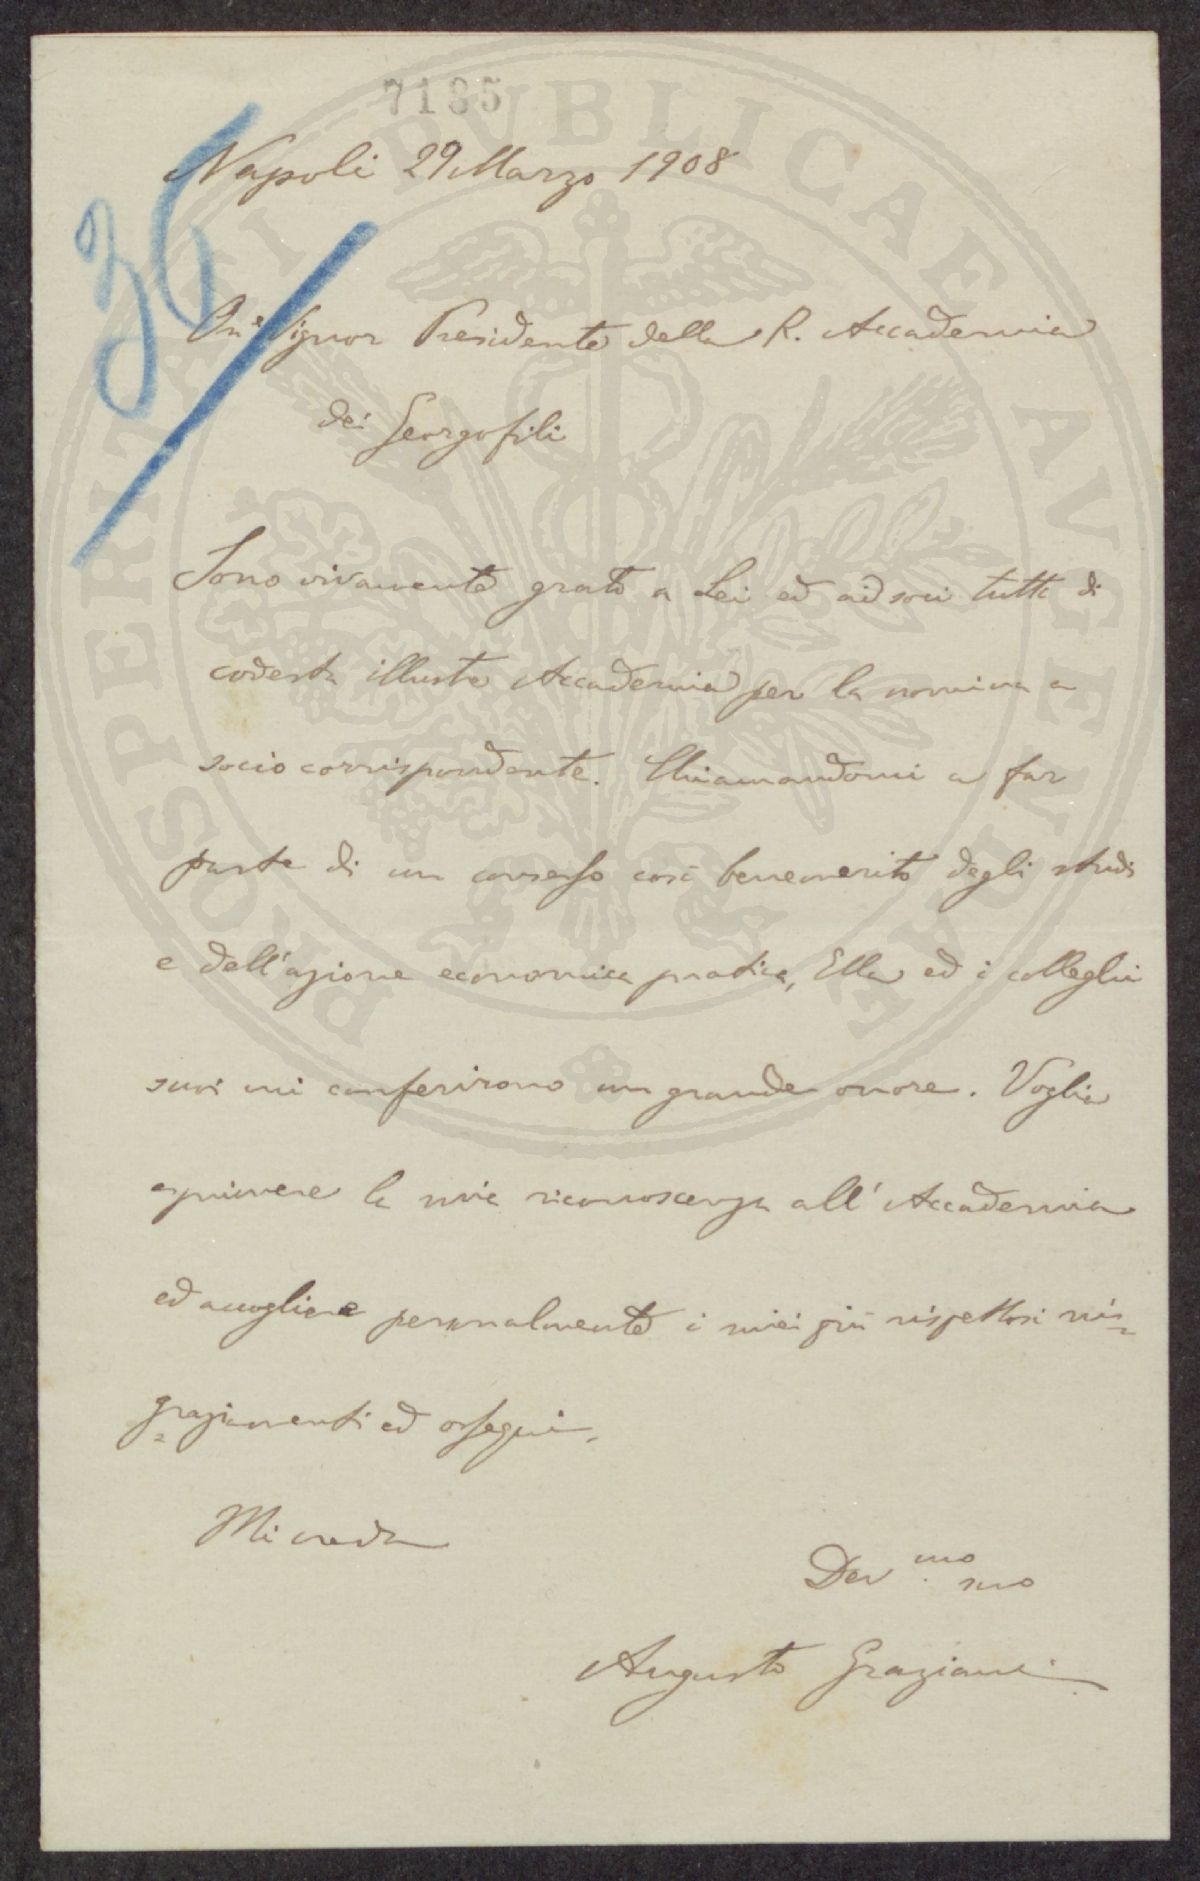 7185
Napoli 29 Marzo 1908
36
On.e Signor Presidente della R. Accademia
dei Georgofili
Sono vivamente grato a Lei ed ai soci tutti di
codesta illustre Accademia per la nomina a
socio corrispondente. Chiamandomi a far
parte di un consesso così benemerito degli studi
e dell'azione economica pratica, Ella ed i colleghi
suoi mi conferirono un grande onore. Voglia
esprimere la mia riconoscenza all'Accademia
ed accogliere personalmente i miei più rispettosi rin=
=graziamenti ed ossequi.
Mi creda
Dev.mo suo
Augusto Graziani
PROSPERITATI PVBLICAE AVGENDAE